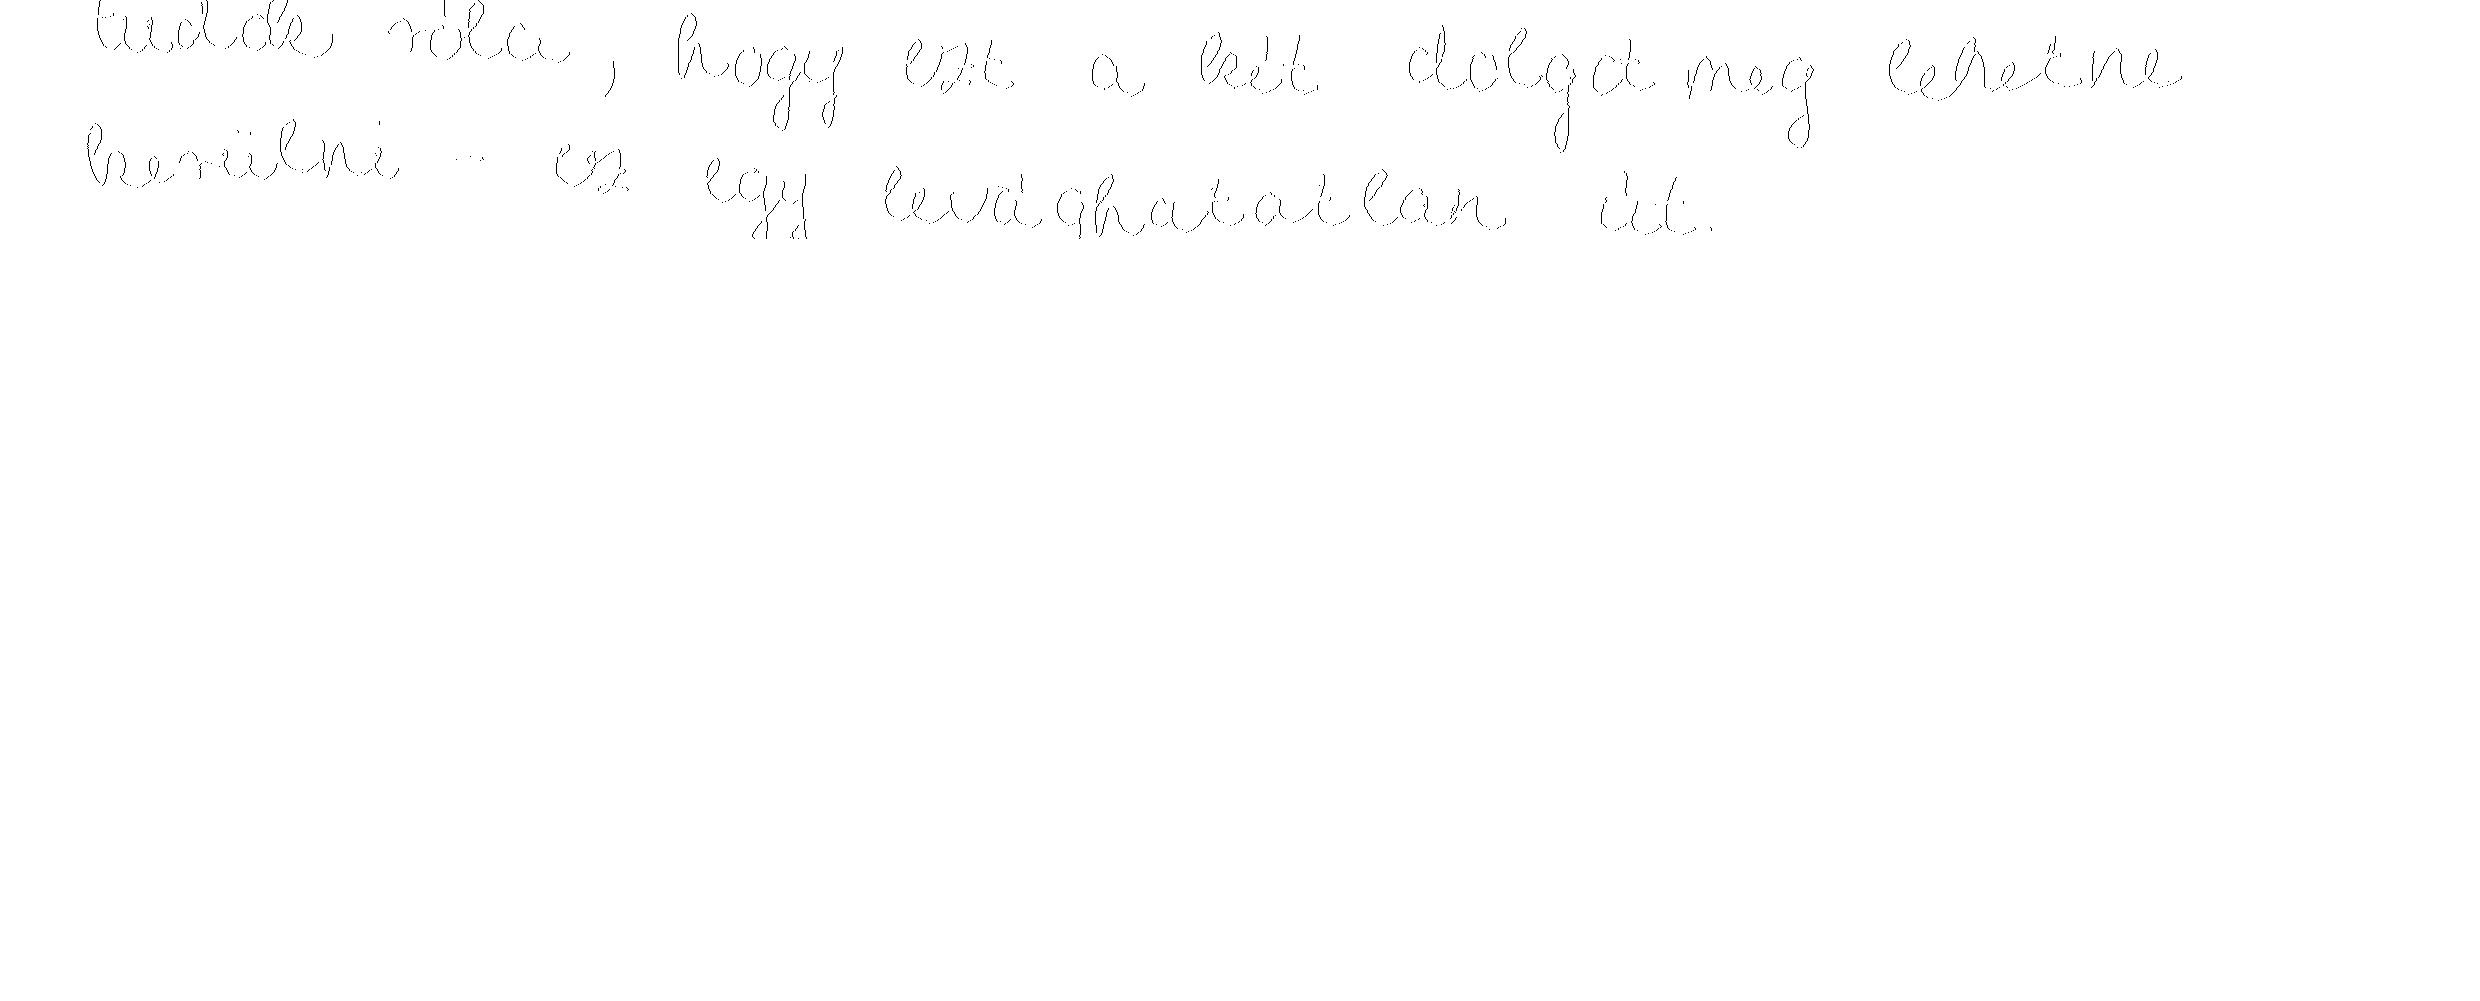 tudok róla, hogy ezt a két dolgot meg lehetne
kerülni - ez egy levághatatlan út.